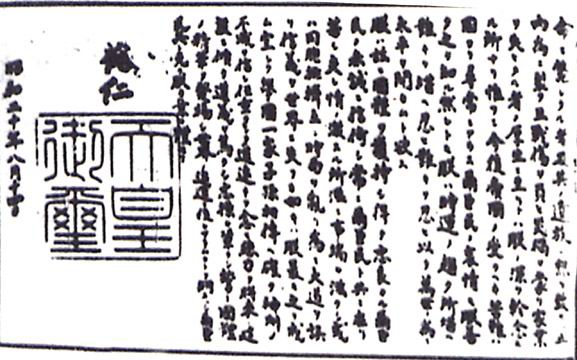 命ニ斃レタル者及其ノ遺族ニ想ヲ致セハ五
内爲ニ裂ク且戰傷ヲ負ヒ災禍ヲ蒙リ家業
ヲ失ヒタル者ノ厚生ニ至リテハ朕ノ深ク軫念ス
ル所ナリ惟フニ今後帝國ノ受クヘキ苦難ハ
固ヨリ尋常ニアラス爾臣民ノ衷情モ朕善
ク之ヲ知ル然レトモ朕ハ時運ノ趨ク所堪ヘ
難キヲ堪ヘ忍ヒ難キヲ忍ヒ以テ萬世ノ爲ニ
太平ヲ開カムト欲ス
朕ハ茲ニ國體ヲ護持シ得テ忠良ナル爾臣
民ノ赤誠ニ信倚シ常ニ爾臣民ト共ニ在リ
若シ夫レ情ノ激スル所濫ニ事端ヲ滋クシ或
ハ同胞排擠互ニ時局ヲ亂リ爲ニ大道ヲ誤
リ信義ヲ世界ニ失フカ如キハ朕最モ之ヲ戒
ム宜シク擧國一家子孫相傳ヘ確ク神州ノ
不滅ヲ信シ任重クシテ道遠キヲ念ヒ總力ヲ將來ノ建
設ニ傾ケ道義ヲ篤クシ志操ヲ鞏クシ誓テ國體
ノ精華ヲ發揚シ世界ノ進運ニ後レサラムコトヲ期スヘシ爾臣
民其レ克ク朕カ意ヲ體セヨ
裕仁
天皇
御璽
昭和二十年八月十四日